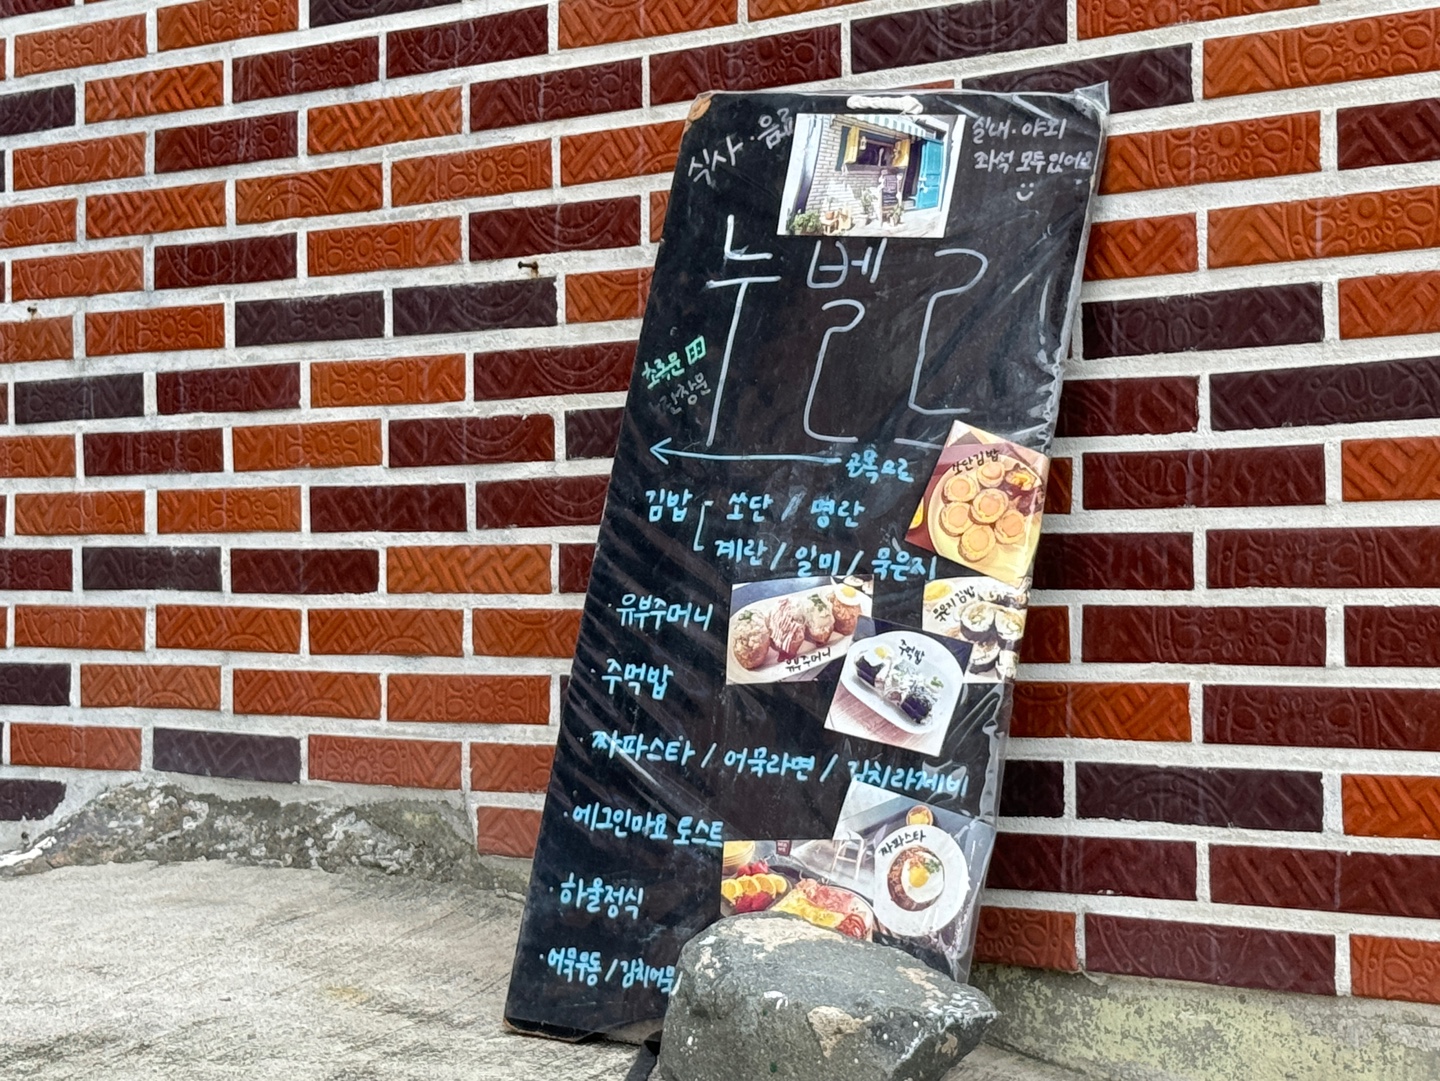 식사·음료
실내·야외
좌석 모두 있어요
누벨
초록문
노란창문
골목으로
김밥 쏘단 / 명란
계란 / 일미 / 묵은지
쏘단김밥
·유부주머니
유부주머니
묵은지 김밥
·주먹밥
주먹밥
·짜파스타 / 어묵라면 / 김치라제비
·에그인마요 토스트
짜파스타
·하울정식
·어묵우동 / 김치어묵